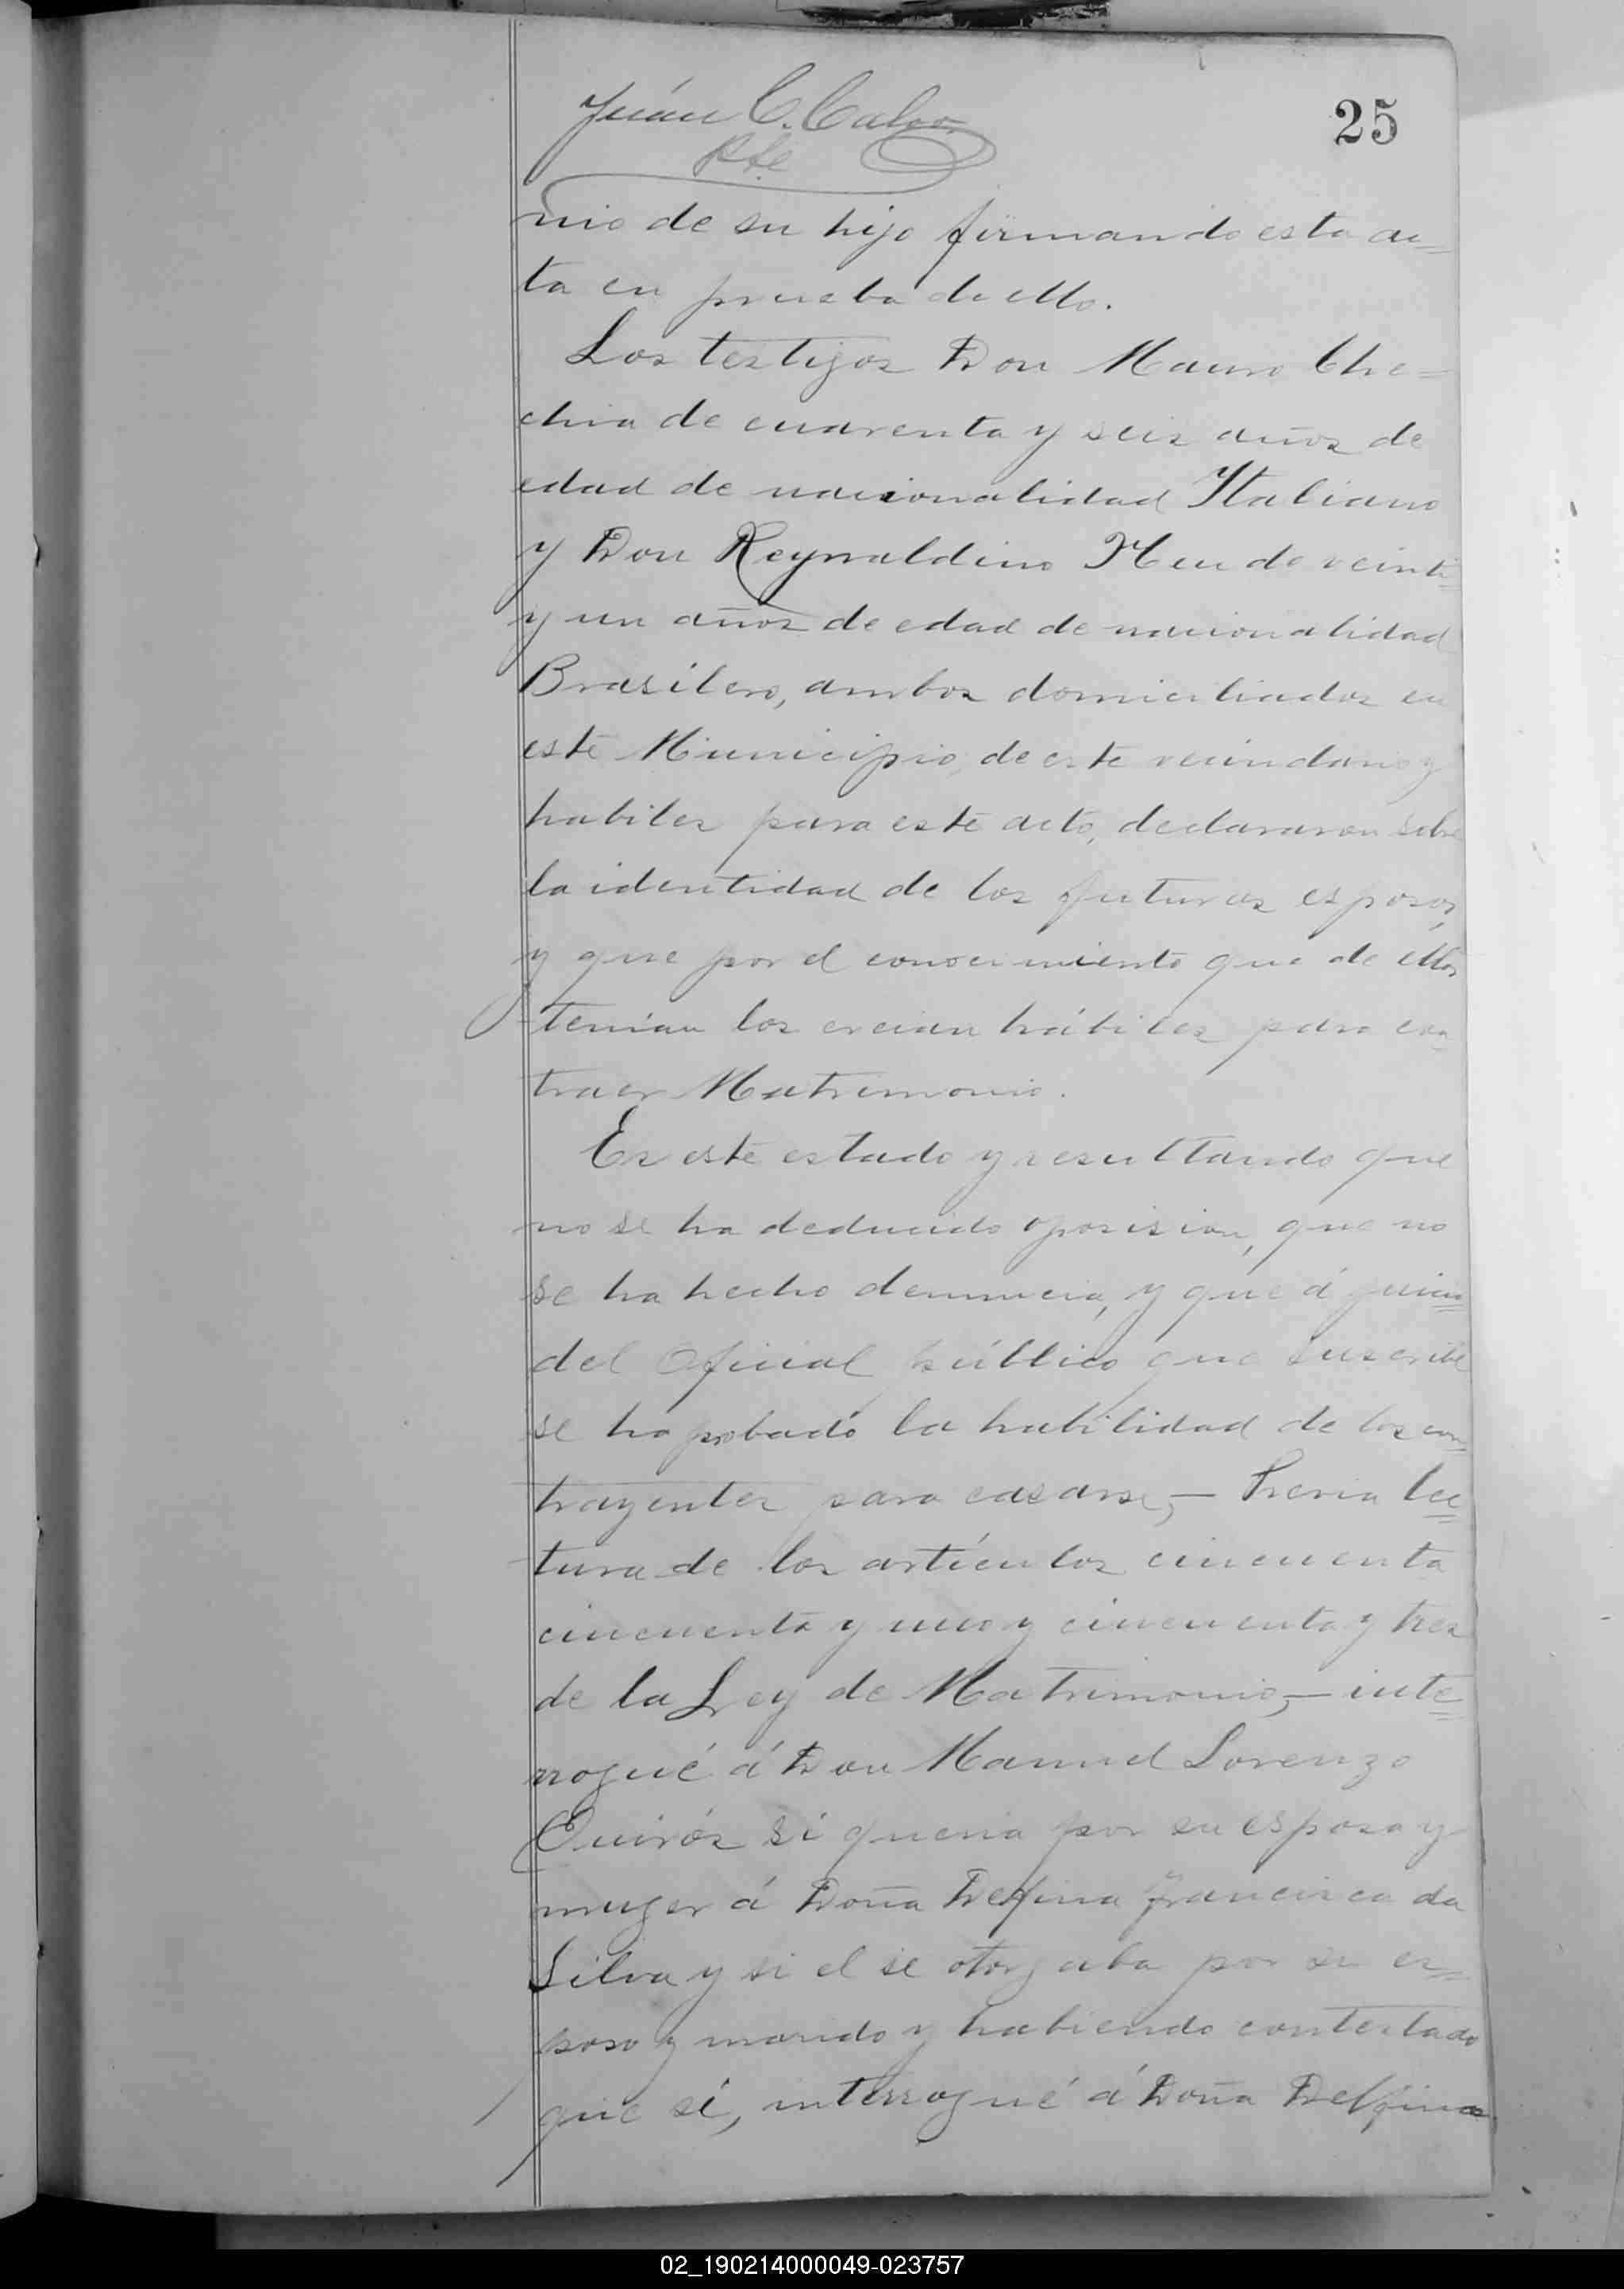 Juán C. Calvo
25
Pte
nio de su hijo firmando esta ac=
ta en prueba de ello.
Los testigos Don Mauro Che=
chia de cuarenta y seis años de
edad de nacionalidad Italiano
y Don Reynaldino de veinti=
y un años de edad de nacionalidad
Brasilero, ambos domiciliados en
este Municipio, de este vecindario y
habiles para este acto, declararon sobre
la identidad de los futuros esposos,
y que por el conocimiento que de ellos
tenían los creian hábiles para con=
traer Matrimonio.
En este estado y resultando que
no se ha deducido oposision, que no
se ha hecho denuncia, y que á juicio=
del Oficial público que suscribe
se ha probado la habilidad de los con=
trayentes para casarse,— Previa lec=
tura de los artículos cincuenta
cincuenta y uno y cincuenta y tres
de la Ley de Matrimonio,— inte=
rrogué á Don Manuel Lorenzo
Quirós si queria por su esposa y
muger á Doña Delfina Francisca da
Silva y si el se otorgaba por su es=
poso y marido y habiendo contestado
que sí, interrogué á Doña Delfina
02_190214000049-023757